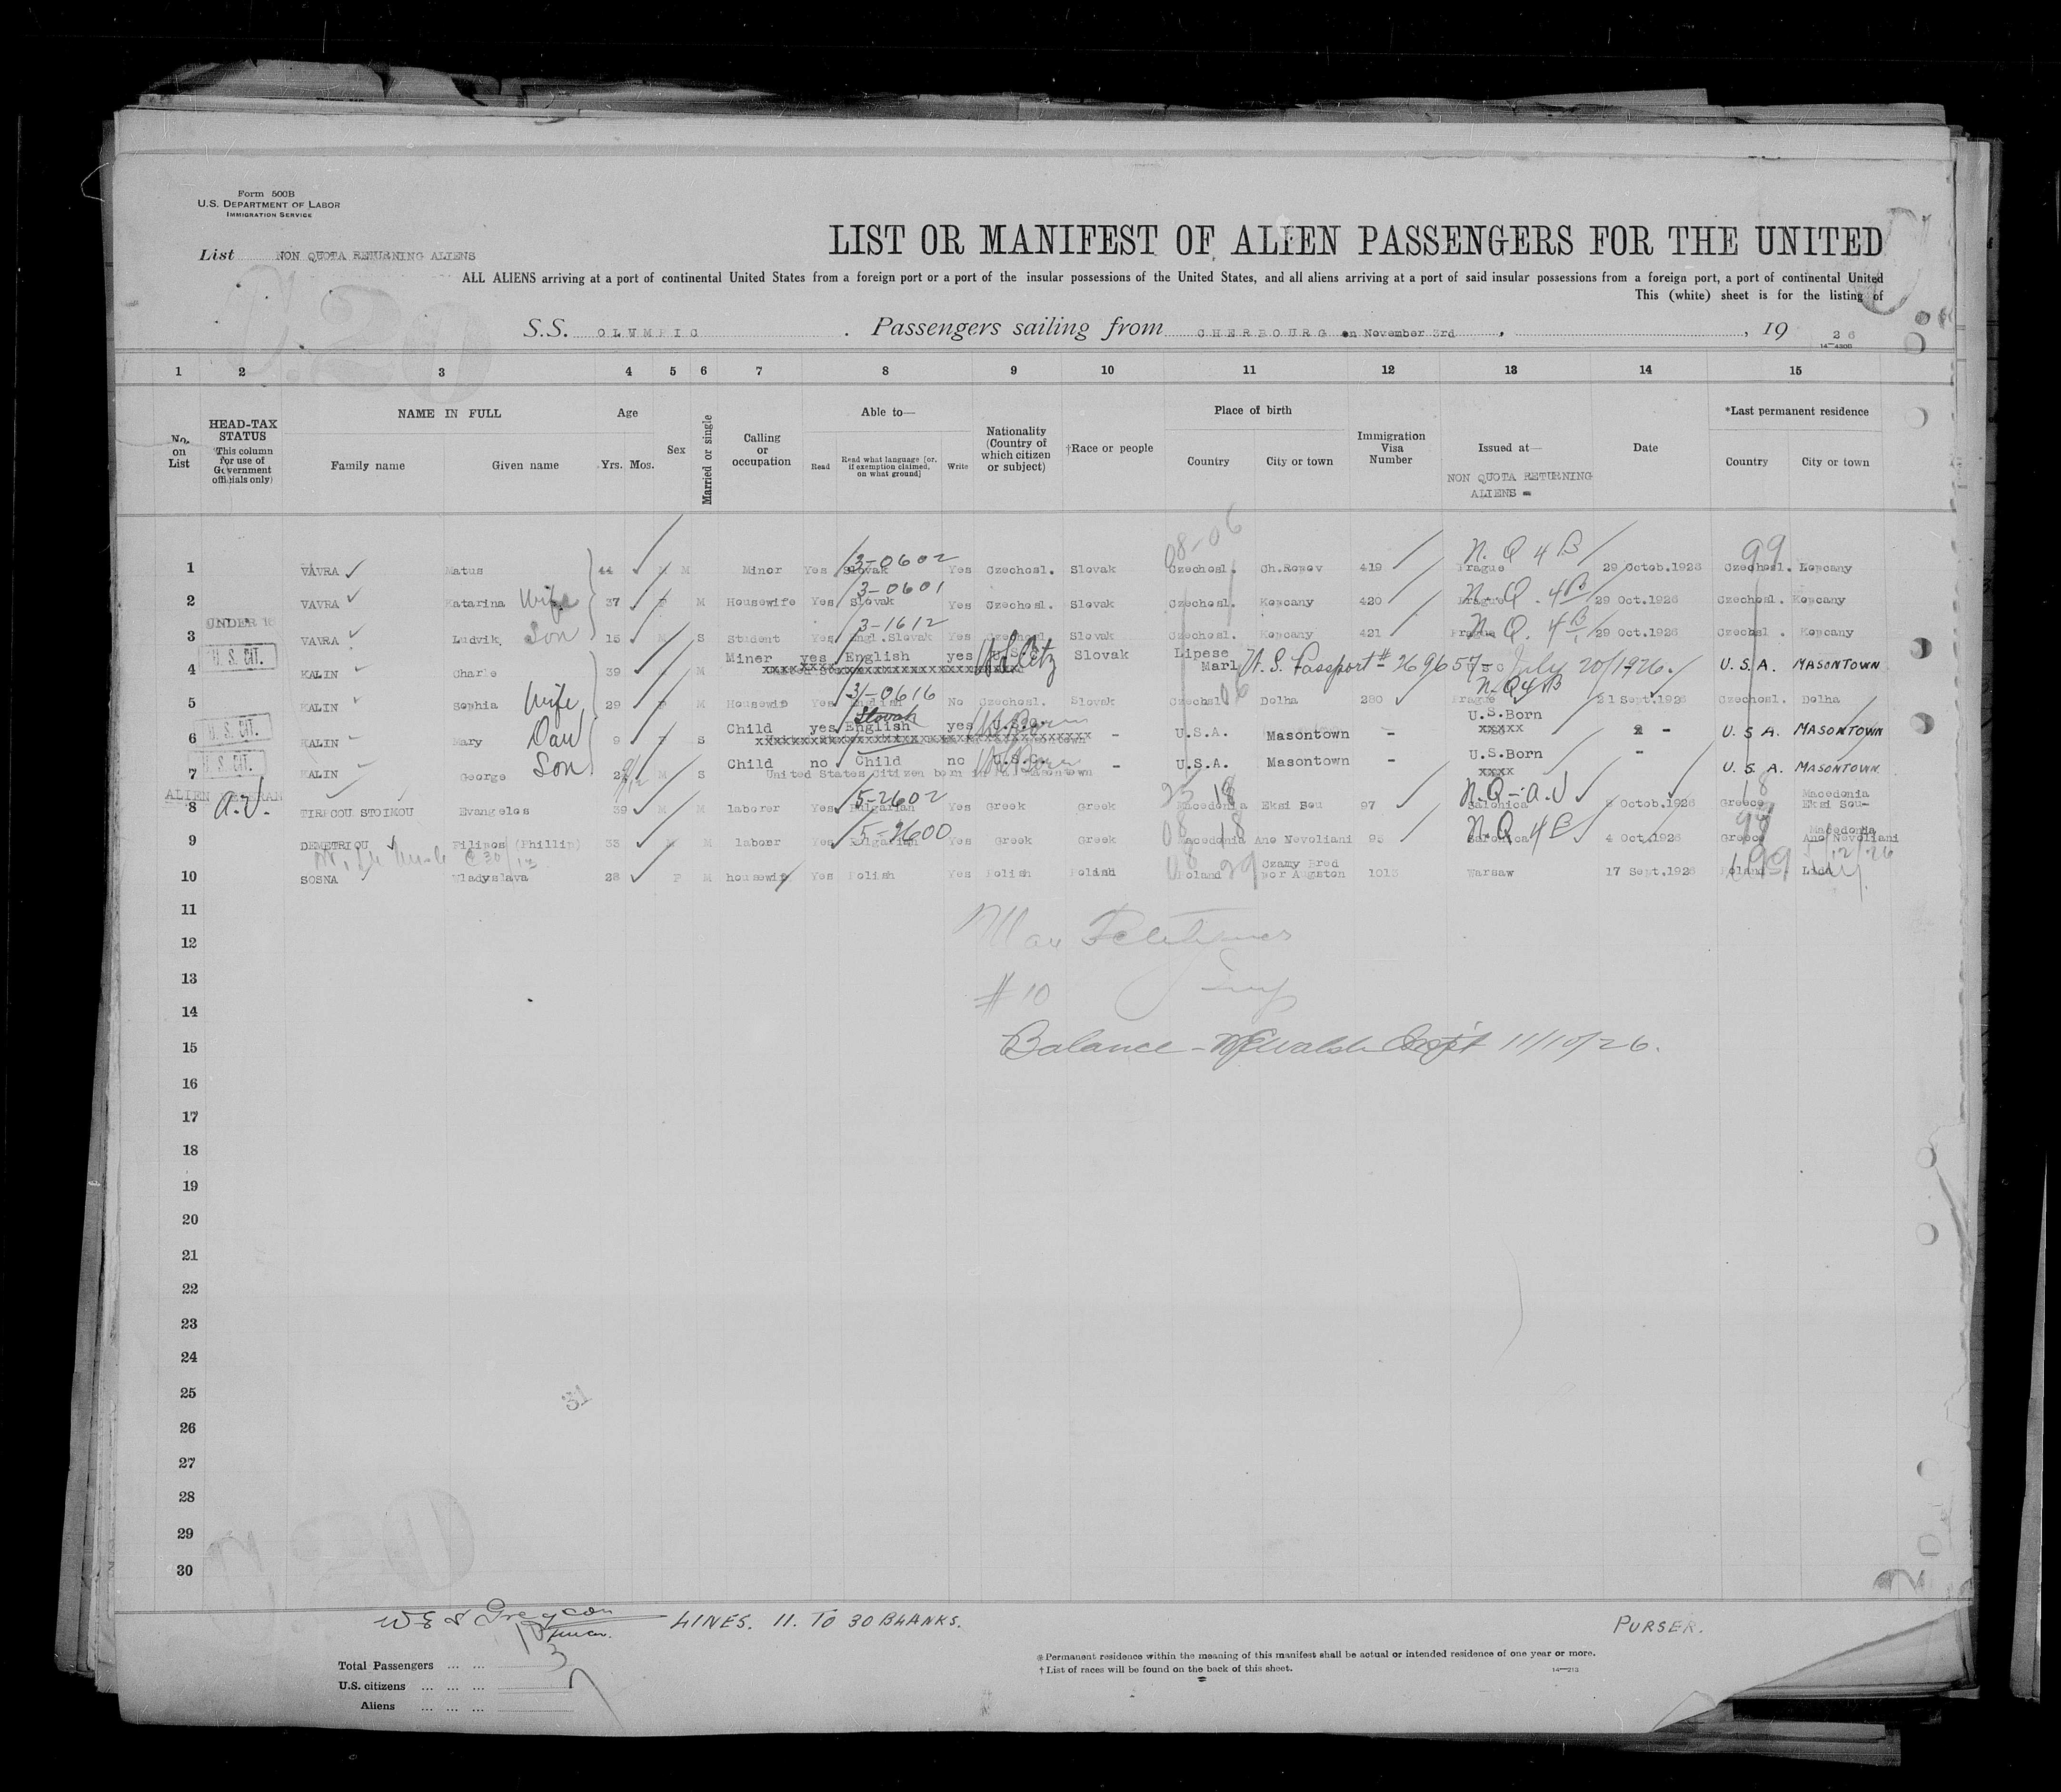 Form 500B
U.S. DEPARTMENT OF LABOR
IMMIGRATION SERVICE
LIST OR MANIFEST OF ALIEN PASSENGERS FOR THE UNITED
List NON QUOTA RETURNING ALIENS
ALL ALIENS arriving at a port of continental United States from a foreign port or a port of the insular possessions of the United States, and all aliens arriving at a port of said insular possessions from a foreign port, a port of continental United
This (white) sheet is for the listing of
S.S. OLYMPIC. Passengers sailing from CHERBOURG on November 3rd, , 19 26
1 2 3 4 5 6 7 8 9 10 11 12 13 14 15
No. on List
HEAD-TAX STATUS
(This column for use of Government officials only)
NAME IN FULL
Family name Given name
Age
Yrs. Mos.
Sex
Married or single
Calling or occupation
Able to—
Read Read what language [or, if exemption claimed, on what ground] Write
Nationality (Country of which citizen or subject)
†Race or people
Place of birth
Country City or town
Immigration Visa Number
Issued at—
NON QUOTA RETURNING ALIENS
Date
*Last permanent residence
Country City or town
08-06
3-0602 N. Q 4 B 99
1 VAVRA Matus 44 M M Minor Yes Slovak Yes Czechosl. Slovak Czechosl. Ch.Ropov 419 Prague 29 Octob.1926 Czechosl. Kopcany
3-0601
2 VAVRA Katarina Wife 37 F M Housewife Yes Slovak Yes Czechosl. Slovak Czechosl. Kopcany 420 Prague N. Q. 4B 29 Oct.1926 Czechosl. Kopcany
UNDER 16 3-1612
3 VAVRA Ludvik, Son 15 M S Student Yes Engl.Slovak Yes Czechosl Slovak Czechosl. Kopcany 421 Prague N. Q. 4B 29 Oct.1926 Czechsl. Kopcany
U. S. CIT. Miner yes English yes U.S.C. Slovak Lipese
4 KALIN Charle 39 M Marl U. S. Passport # 269657- July 20/1926. U.S.A. MASONTOWN
3-0616 N.Q4B
5 KALIN Sophia Wife 29 F M Housewife Yes English No Czechosl. Slovak Czechsl 06 Dolha 280 Prague 21 Sept.1926 Czechosl. Dolha
U. S. CIT. Slovak
Child yes English yes U.S.C. U.S.Born
6 KALIN Mary Dau 9 F S - U.S.A. Masontown - xxxxx - U.S.A. MASONTOWN
U. S. CIT. Child no Child no U.S.C. U.S.Born
7 KALIN George Son 2 M S United States Citizen born in Masontown - U.S.A. Masontown - xxxx - U.S.A. MASONTOWN
ALIEN VETERAN 5-2602 18 N.Q-A.V 18 Macedonia
8 A.V. TIRPCOU STOIMOU Evangelos 39 M M laborer Yes Bulgarian Yes Greek Greek Macedonia Eksi Sou 97 Salonica Octob.1926 Greece Eksi Sou-
5-2600 18 N.Q 4B Macedonia
9 DEMETRIOU Filipos (Phillip) 33 M M laborer Yes Bulgarian Yes Greek Greek Macedonia Ano Nevoliani 95 Salonica 4 Oct.1926 Greece Ano Nevoliani
Czamy Brod
10 SOSNA Wladyslava 28 F M housewife Yes Polish Yes Polish Polish Poland por Augston 1013 Warsaw 17 Sept.1926 Poland Lida
11
12
13
# 10
14
15 Balance - 11/10/26.
16
17
18
19
20
21
22
23
24
25
31
26
27
28
29
30
LINES. 11. TO 30 BLANKS.
PURSER.
Total Passengers ... ... 10
U.S. citizens ... ... ... 3
Aliens ... ... ... 7
* Permanent residence within the meaning of this manifest shall be actual or intended residence of one year or more.
† List of races will be found on the back of this sheet.
14—213